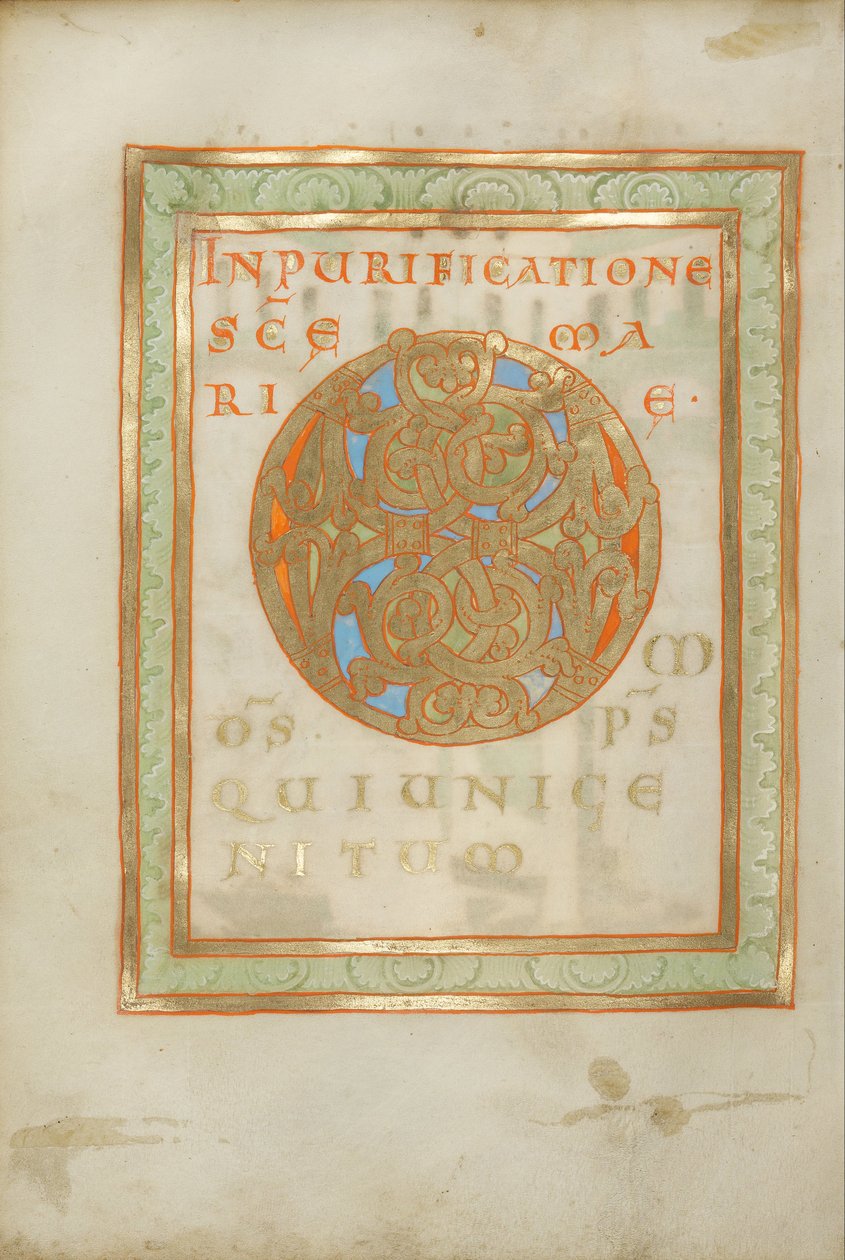 INPURIFICATIONE
SC̄E MA
RI E·
O M
ōs̄ · P̄S
QUIUNIGE
NITUM